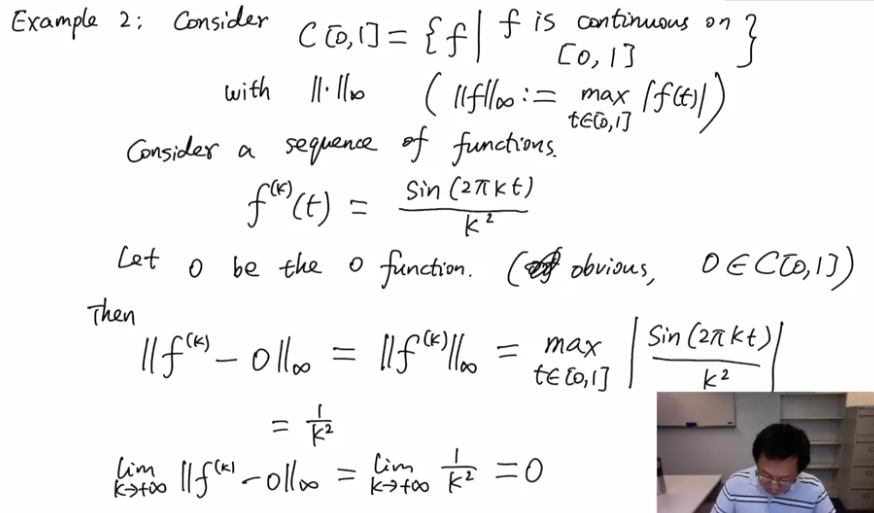 Example 2: Consider C[0,1] = {f | f is continuous on [0,1]}
with ||·||∞ (||f||∞ := max t∈[0,1] |f(t)|)
Consider a sequence of functions.
f^(k)(t) = sin(2πkt) / k²
Let 0 be the 0 function. (obvious, 0 ∈ C[0,1])
Then
||f^(k) - 0||∞ = ||f^(k)||∞ = max t∈[0,1] | sin(2πkt) / k² |
= 1/k²
lim k→+∞ ||f^(k) - 0||∞ = lim k→+∞ 1/k² = 0